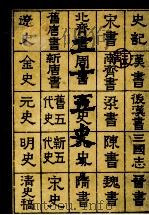 史記 漢書 後漢書 三國志 晉書
宋書 南齊書 梁書 陳書 魏書
二十五史
北齊 周書 史 隋書
舊唐書 新唐書 舊五代史 新五代史 宋史
遼史 金史 元史 明史 清史稿